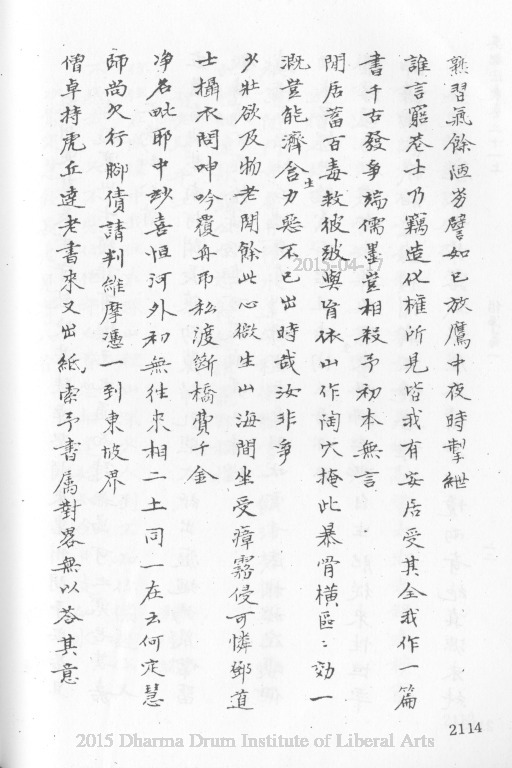 熟習氣餘陋劣譬如已放鷹中夜時掣紲
誰言窮巷士乃竊造化權所見皆我有安居受其全我作一篇
書千古發爭端儒墨豈相殺予初本無言
閒居蓄百毒救彼跛與盲依山作陶穴掩此暴骨橫區〻効一
溉豈能濟含力惡不已出時哉汝非爭
士
少壯欲及物老閒餘此心微生山海間坐受瘴霧侵可憐鄧道
士攝衣問呻吟覆舟卬私渡斷橋費千金
净名毗耶中妙喜恒河外初無往來相二土同一在云何定慧
師尚欠行腳債請判維摩憑一到東坡界
僧卓持虎丘達老書來又出紙索予書屬對客無以荅其意
2114
2015-04-17
2015 Dharma Drum Institute of Liberal Arts